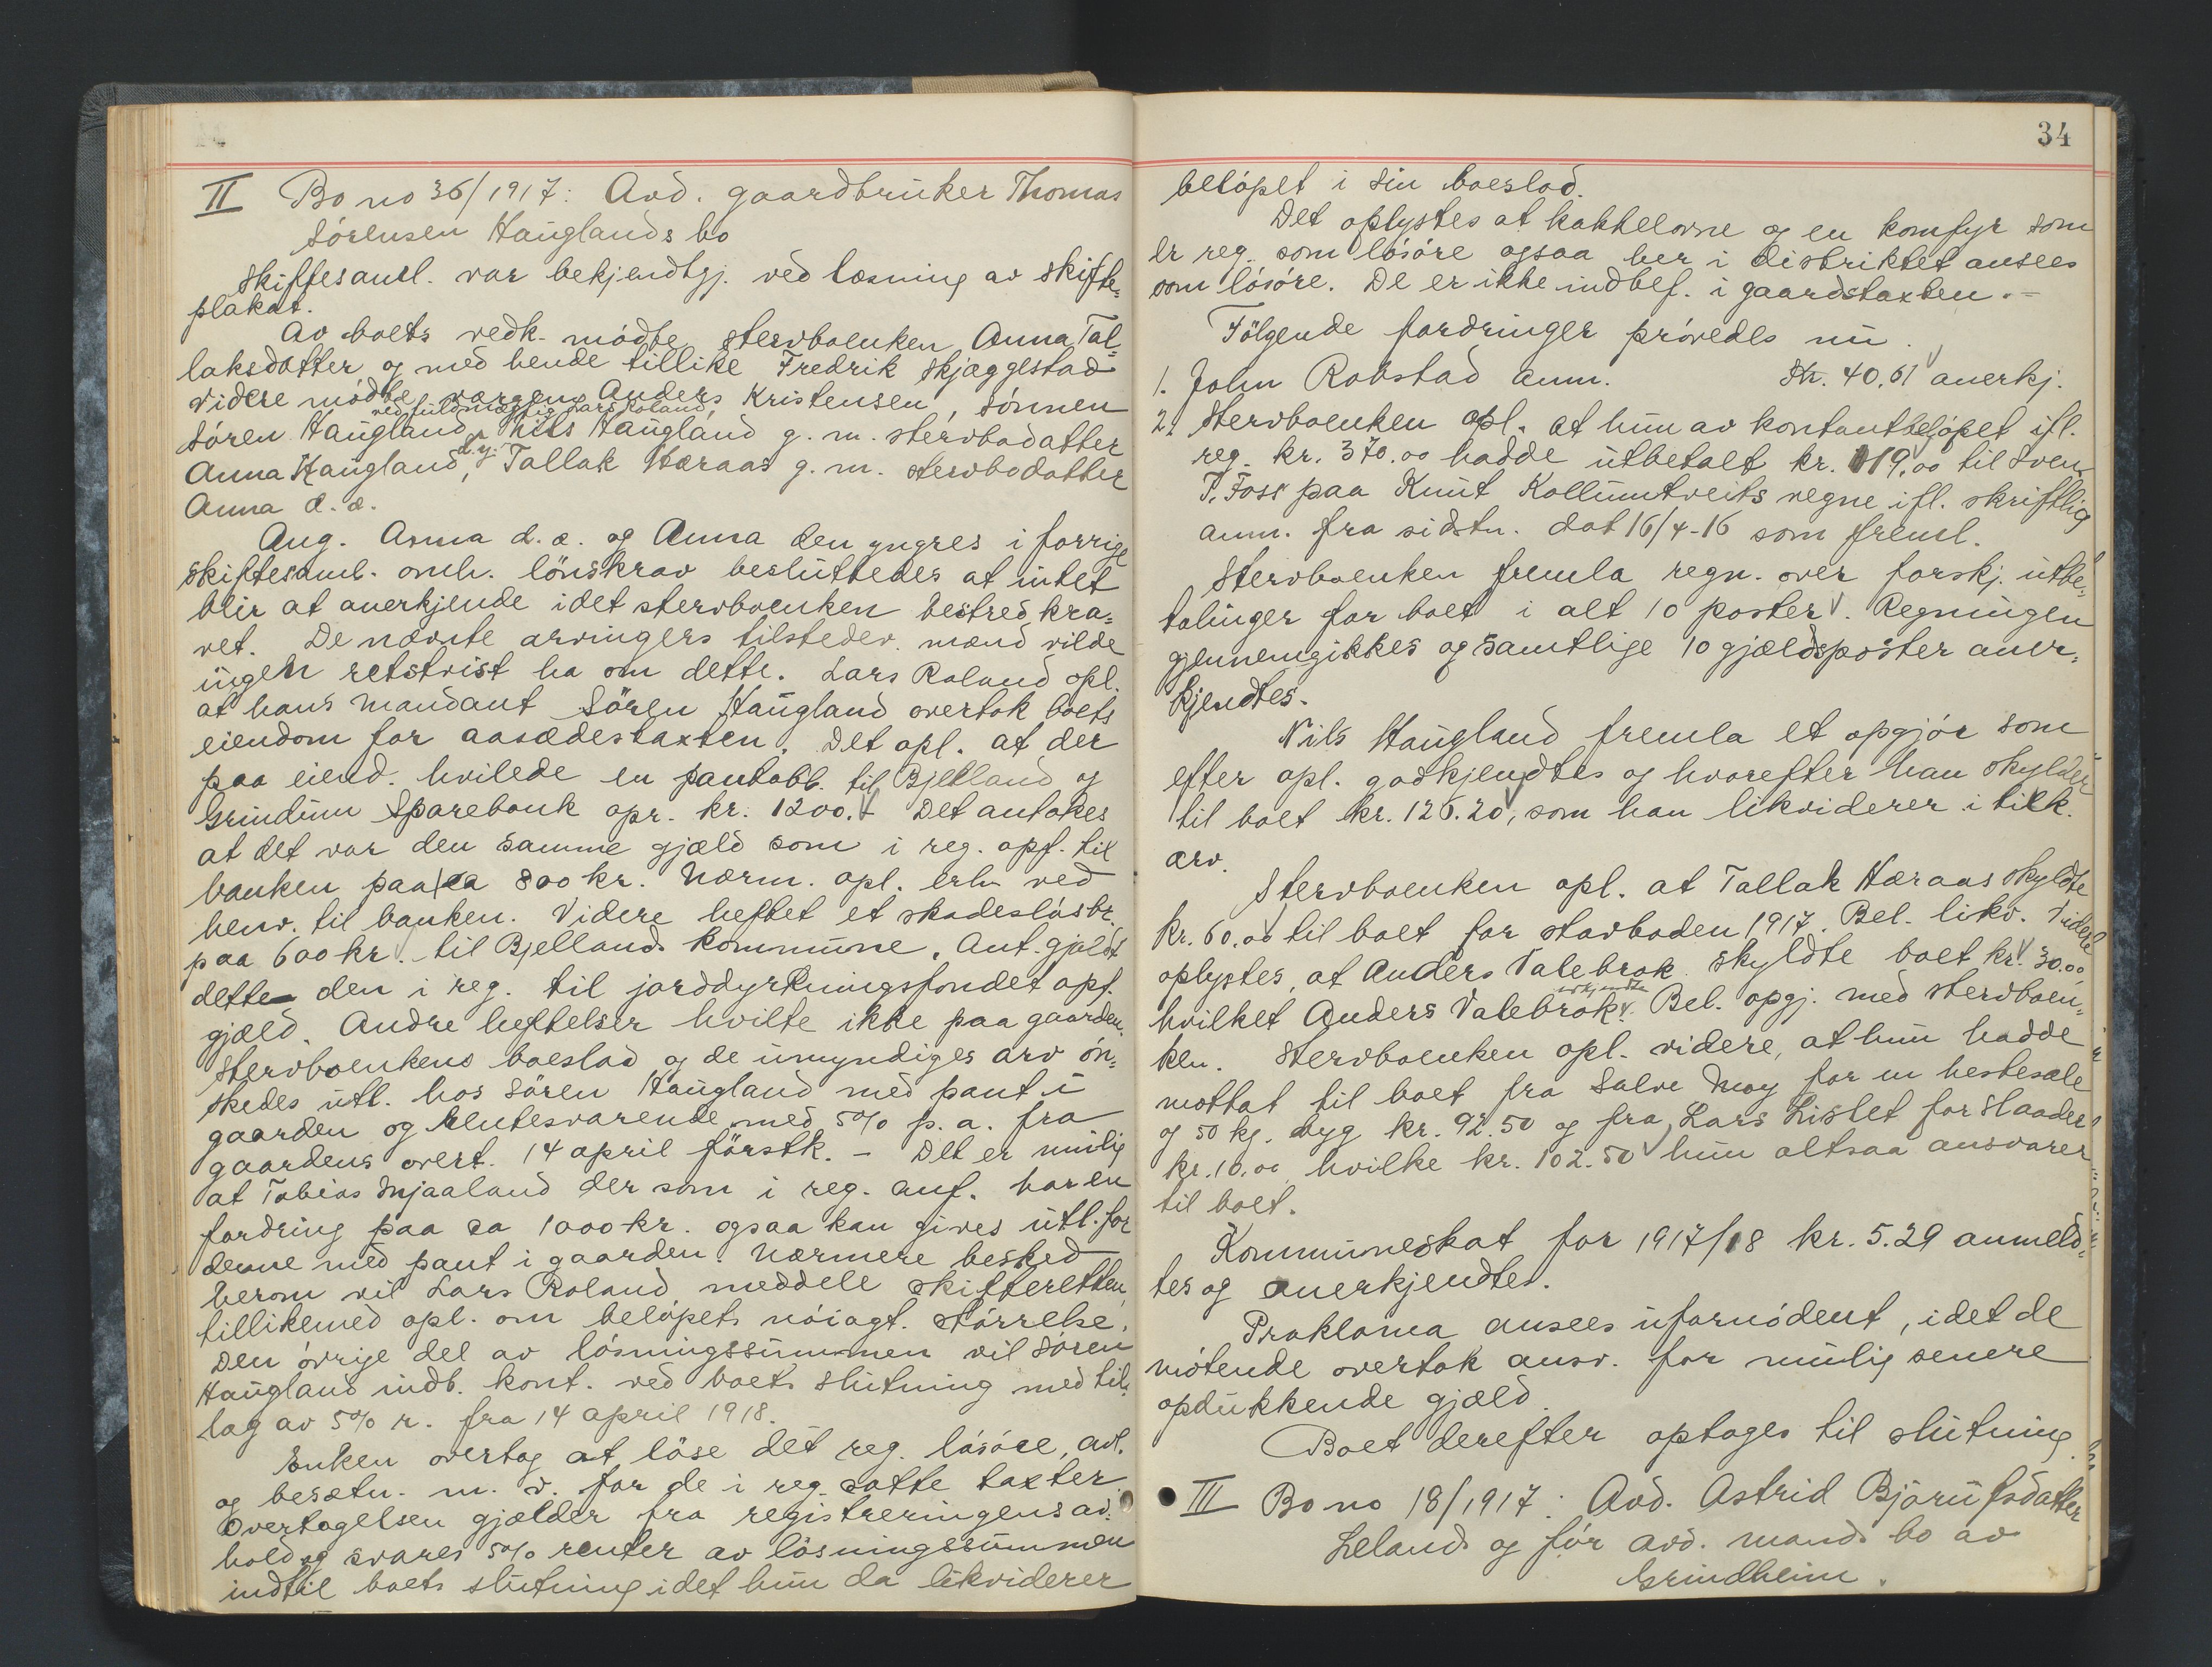 II Bo no 36/1917: Avd. gaardbruker Thomas
Sørensen Hauglands bo
Skiftesaml. var bekjendtgj. ved læsning av skifte-
plakat.
Av boets vedk. mødte stervboenken Anna Tal-
laksdatter og med hende tillike Fredrik Skjaggestad
Videre mødte vergen Anders Kristensen, sønnen
ved fuldmægtig Lars Roland,
Søren Haugland, Nils Haugland g. m. stervbodatter
Anna Haugland d.y., Tallak Hæraas g. m. stervbodatter
Anna d. æ.
Ang. Anna d. æ. og Anna den yngres i forrige
skiftesaml. omh. lønskrav besluttedes at intet
blir at anerkjende idet stervboenken bestred kra-
vet. De nævnte arvingers tilstedev. mænd vilde
ingen retstvist ha om dette. Lars Roland opl.
at hans mandant Søren Haugland overtok boets
eiendom for aasædestaxten. Det opl. at der
paa eiend. hvilede en pantobl. til Bjelland og
Grindum Sparebank opr. kr. 1200. Det antakes
at det var den samme gjæld som i reg. opf. til
banken paa ca 800 kr. Nærm. opl. erh. ved
henv. til banken. Videre heftet et skadesløsbr.
paa 600 kr. til Bjelland kommune. Ant. gjaldt
dette den i reg. til jorddyrkningsfondet opf.
gjæld. Andre heftelser hvilte ikke paa gaarden.
Stervboenkens boeslod og de umyndiges arv øn-
skedes utl. hos Søren Haugland med pant i
gaarden og rentesvarende med 5% p. a. fra
gaardens overt. 14 april førstk. - Det er mulig
at Tobias Mjaaland der som i reg. anf. har en
fordring paa ca 1000 kr. ogsaa kan gives utl. for
denne med pant i gaarden. Nærmere besked
herom vil Lars Roland meddele skifteretten,
tillikemed opl. om beløpets nøiagt. størrelse.
Den øvrige del av løsningssummen vil Søren
Haugland indb. kont. ved boets slutning med til-
læg av 5% r. fra 14 april 1918.
Enken overtog at løse det reg. løsøre, avl.
og besætn. m. v. for de i reg. satte taxter.
Overtagelsen gjælder fra registreringens av-
hold og svares 5% renter av løsningssummen
indtil boets slutning idet hun da likviderer
34
beløpet i sin boeslod.
Det oplystes at kakkelovne og en komfyr som
er reg. som løsøre ogsaa her i distriktet ansees
som løsøre. De er ikke indbef. i gaardstaxten. -
Følgende fordringer prøvedes nu.
1. John Robstad anm. Kr. 40,61 anerkj.
2. Stervboenken opl. at hun av kontantbeløpet ifl.
reg. kr. 370.00 hadde utbetalt kr. 119.00 til Sven
T. Foss paa Knut Kollumtveits vegne ifl. skriftlig
anm. fra sidstn. dat 16/4-16 som freml.
Stervboenken fremla regn. over forskj. utbe-
talinger for boet i alt 10 poster. Regningen
gjennemgikkes og samtlige 10 gjældsposter aner-
kjendtes.
Nils Haugland fremla et opgjør som
efter opl. godkjendtes og hvorefter han skylder
til boet kr. 126.20, som han likviderer i tilk.
arv.
Stervboenken opl. at Tallak Hæraas skyldte
kr. 60.00 til boet for stavboden 1917. Bel. likv. Videre
oplystes, at Anders Valebrok skyldte boet kr. 30.00
hvilket Anders Valebrok erkjendte. Bel. opgj. med stervboen-
ken. Stervboenken opl. videre, at hun hadde
mottat til boet fra Salve Moy for en hestesæle
og 50 kg. byg kr. 92.50 og fra Lars Listet for
kr. 10.00 hvilke kr. 102.50 hun altsaa ansvarer
til boet.
Kommuneskat for 1917/18 kr. 5.29 anmeld-
tes og anerkjendtes.
Proklama ansees ufornødent, idet de
møtende overtok ansv. for mulig senere
opdukkende gjæld.
Boet derefter optages til slutning.
III Bo no 18/1917: Avd. Astrid Bjørnufsdatter
Lelands og før avd. mands bo av
Grindheim.